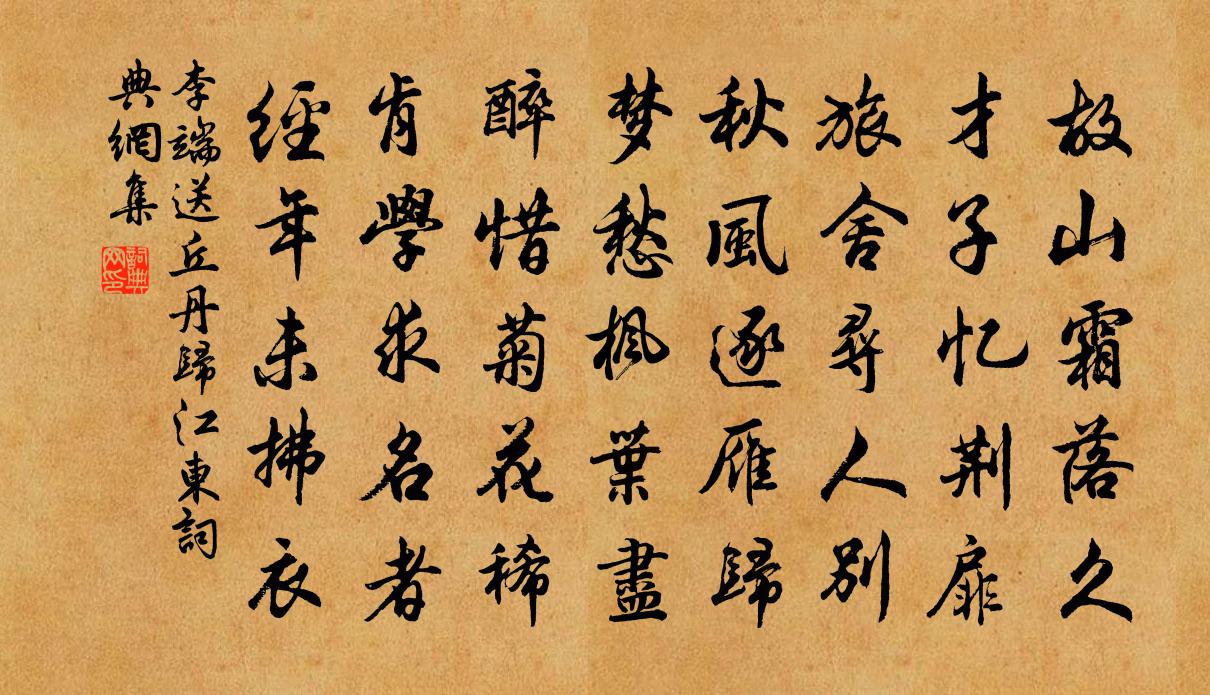 故山霜落久
才子忆荆扉
旅舍尋人別
秋風逐雁歸
梦愁楓葉盡
醉惜菊花稀
肯學求名者
經年未拂衣
李端送丘丹歸江東詞
典網集
詞典
网印